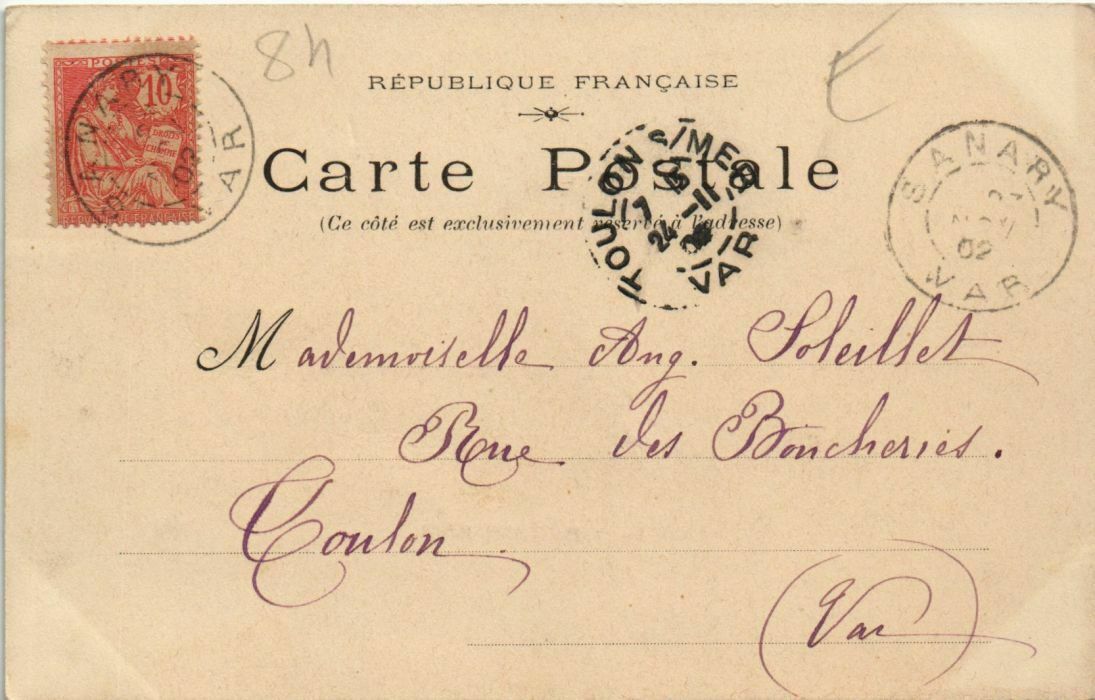 8h
RÉPUBLIQUE FRANÇAISE
Carte Postale
(Ce côté est exclusivement réservé à l'adresse)
POSTES
10
DROITS DE L'HOMME
RÉPUBLIQUE FRANÇAISE
SANARY
02
VAR
TOULON S/MER
7 15
24-11
02
VAR
SANARY
02
VAR
Mademoiselle Ang. Soleillet
Rue des Boucheries.
Toulon
(Var)